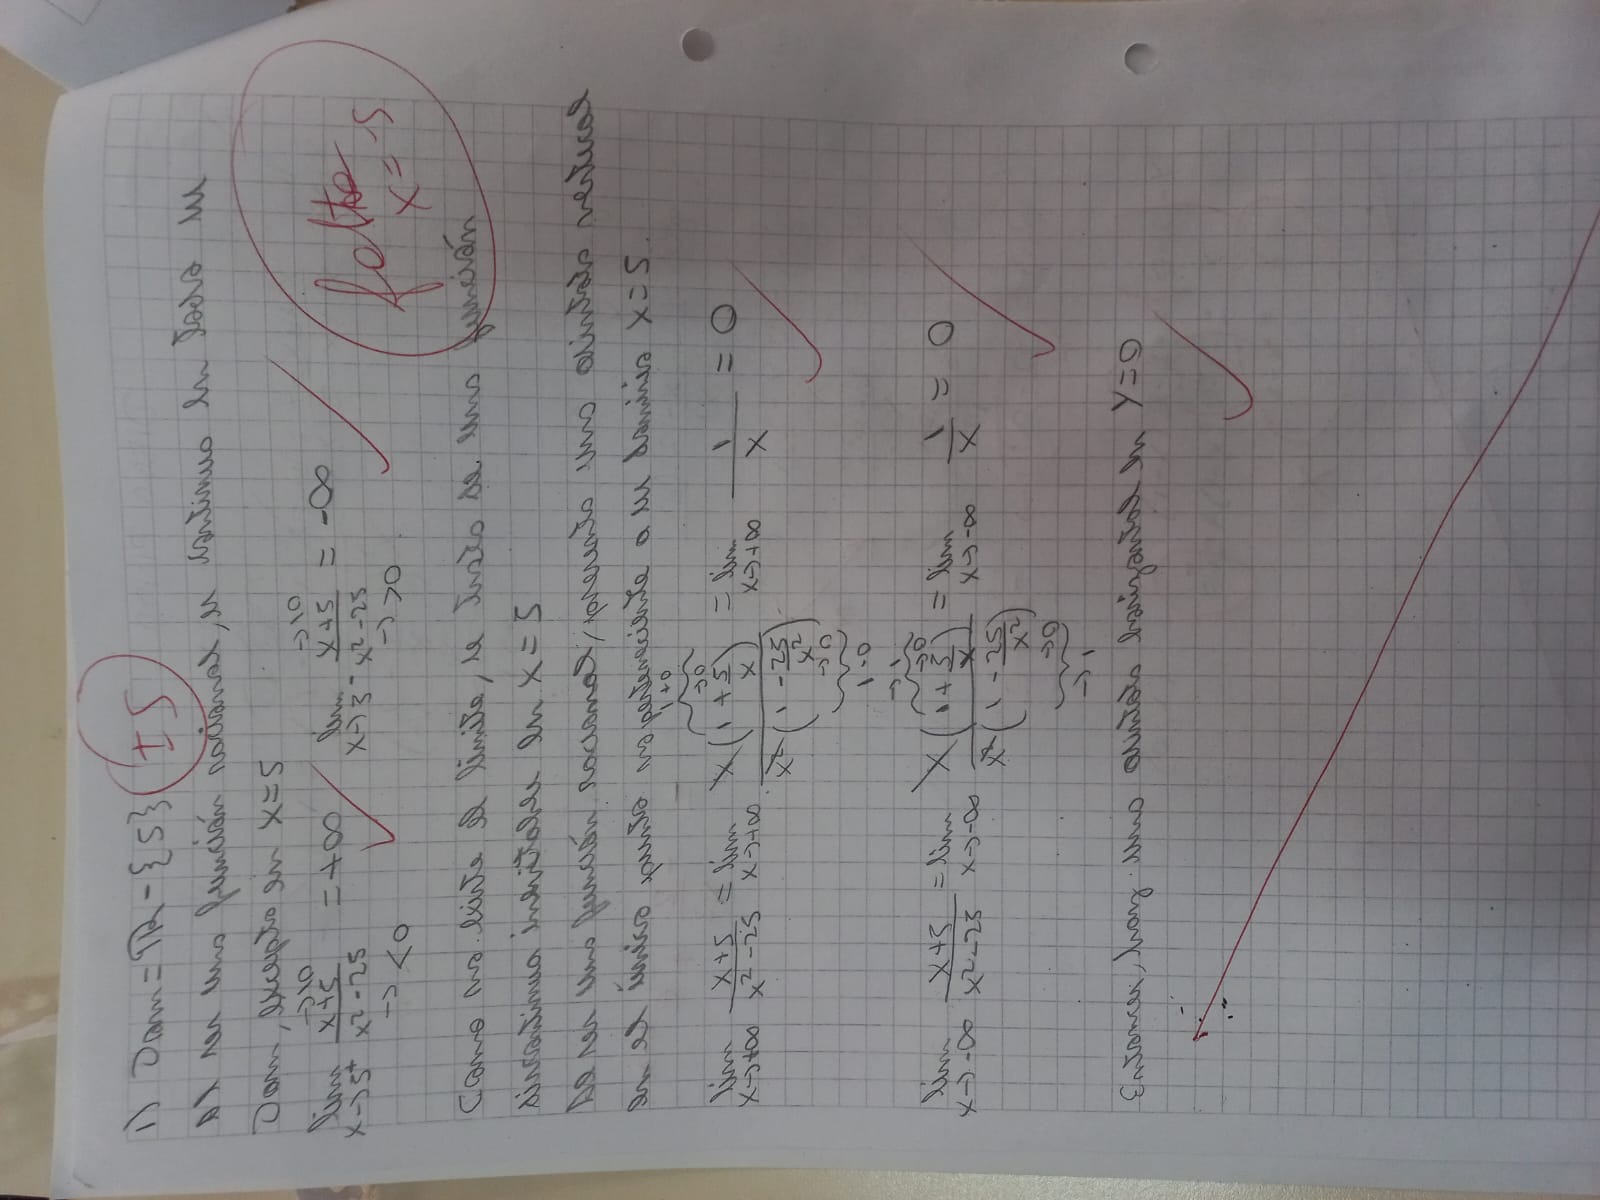 1) Dom = R - {5} ±5
Al ser una función racional, es continua en todo su
Dom, excepto en x=5
lim x→5⁺ x+5 →10 / x²-25 → <0 = +∞ lim x→5⁻ x+5 →10 / x²-25 → >0 = -∞
falta
x=-5
Como no existe el límite, se trata de una función
discontinua inevitable en x=5
Al ser una función racional, presenta una asíntota vertical
en el único punto no perteneciente a su dominio x=5.
lim x→+∞ x+5 / x²-25 = lim x→+∞ x(1 + 5/x →0) 1+0 / x²(1 - 25/x² →0) 1-0 = lim x→+∞ 1/x = 0
lim x→-∞ x+5 / x²-25 = lim x→-∞ x(1 + 5/x →0) →1 / x²(1 - 25/x² →0) →1 = lim x→-∞ 1/x = 0
Entonces, hay una asíntota horizontal en y=0